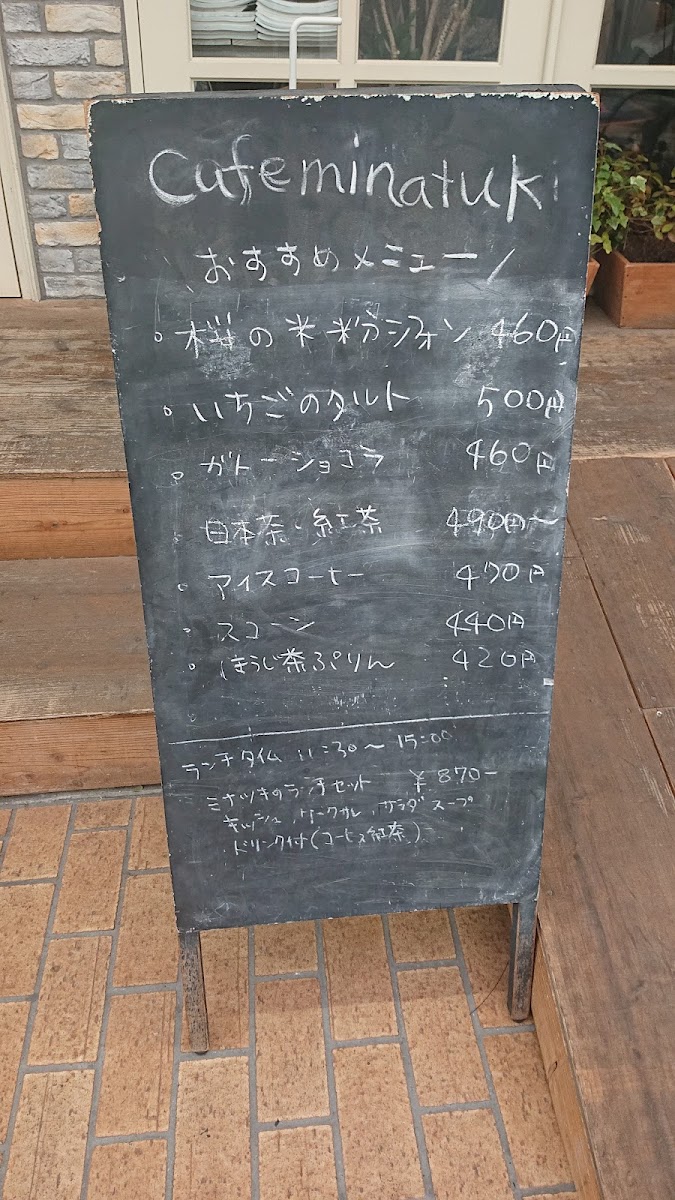 Cafeminatuki
\ おすすめメニュー /
。桜の米粉シフォン 460円
。いちごのタルト 500円
。ガトーショコラ 460円
日本茶・紅茶 490円〜
。アイスコーヒー 470円
。スコーン 440円
。ほうじ茶ぷりん 420円
ランチタイム 11:30〜15:00
ミナツキのランチセット ¥870-
キッシュ, サラダ スープ
ドリンク付(コーヒー紅茶)